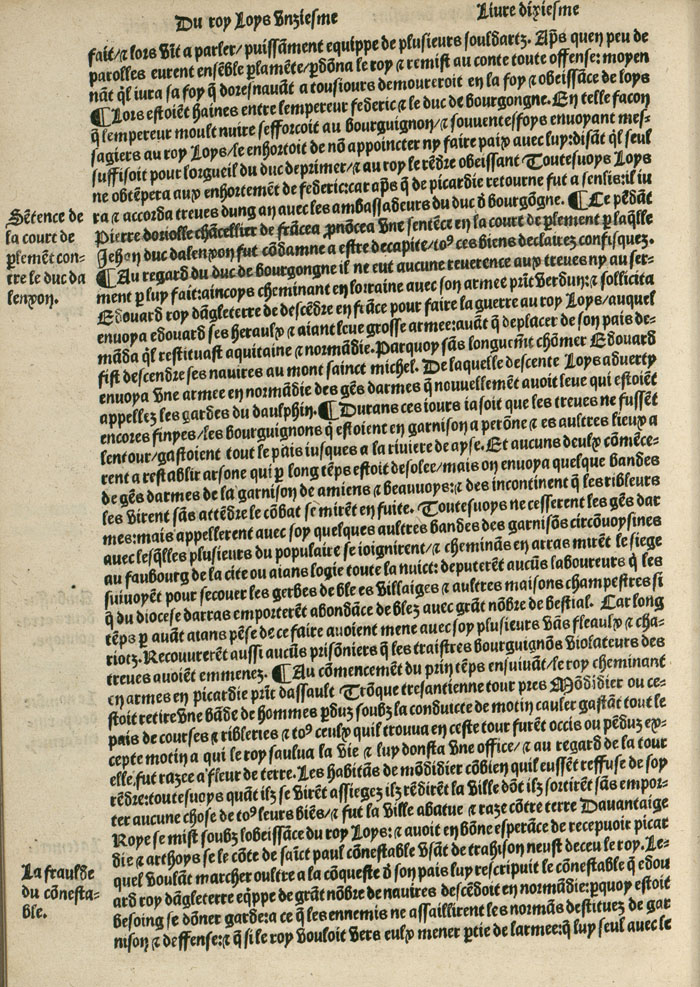 Du roy Loys Unziesme
Livre dixiesme
fait/ & lors vit a parler/ puissāment equippe de plusieurs souldartz. Ap̄s quen peu de
parolles eurent ensēble ꝑlamēte/ ꝑdōna le roy & remist au conte toute offense: moyen
nāt q̄l iura sa foy q̄ doresnauāt a tousiours demoureroit en la foy & obeissāce de loys
¶ Lors estoiēt haines entre lempereur federic & le duc de bourgongne. En telle facon
q̄ lempereur moult nuire sefforcoit au bourguignon/ & souuentesfoys enuoyant mes-
sagiers au roy Loys/ le enhortoit de nō appoincter ny faire paix auec luy: disāt q̄l seul
suffisoit pour lorgueil du duc deprimer/ & au roy le rēdre obeissant Toutesuoys Loys
ne obtēpera aux enhortemēt de federic: car ap̄s q̄ de picardie retourne fut a senlis: il iu
ra & accorda treues dung an auec les ambassadeurs du duc d̄ bourgōgne. ¶ Ce pēdāt
Pierre doriolle chācellier de frācea pnōcea vne sentēce en la court de ꝑlement ꝑ laq̄lle
Jehan duc dalenxon fut cōdamne a estre decapite/ to⁹ ces biens declairez confisquez.
¶ Au regard du duc de bourgongne il ne eut aucune reuerence aux treues ny au ser-
ment ꝑ luy fait: aincoys cheminant en lorraine auec son armee prīt verdun: & sollicita
Edouard roy dāgleterre de descēdre en frāce pour faire la guerre au roy Loys/ auquel
enuoya edouard ses heraulx & aiant leue grosse armee: auāt q̄ deplacer de son pais de-
māda q̄l restituast aquitaine & normādie. Parquoy sās longuemt chōmer Edouard
fist descendre ses nauires au mont sainct michel. De laquelle descente Loys aduerty
enuoya vne armee en normādie des gēs darmes q̄ nouuellemēt auoit leue qui estoiēt
appellez les gardes du daulphin. ¶ Durans ces iours ia soit que les treues ne fussēt
encores finyes/ les bourguignons q̄ estoient en garnison a perōne & es aultres lieux a
lentour/ gastoient tout le pais iusques a la riuiere de ayse. Et aucuns deulx cōmēce-
rent a restablir arsone qui ꝑ long tēps estoit desolee/ mais on enuoya quelque bandes
de gēs darmes de la garnison de amiens & beauuoys: & des incontinent q̄ les ribleurs
les virent sās attēdre le cōbat se mirēt en fuite. Toutesuoys ne cesserent les gēs dar
mes: mais appellerent auec soy quelques aultres bandes des garnisōs circōuoysines
auec lesq̄lles plusieurs du populaire se ioignirent/ & chemināns en arras mirēt le siege
au faubourg de la cite ou aians logie toute la nuict: deputerēt aucūs laboureurs q̄ les
suiuoyēt pour secouer les gerbes de ble es villaiges & aultres maisons champestres si
q̄ du diocese darras emporterēt abondāce de blez auec grāt nōbre de bestial. Car long
tēps ꝑ auāt atans pēse de ce faire auoient mene auec soy plusieurs vās fleaulx & cha-
riotz. Recouurerēt aussi aucūs prisōniers q̄ les traistres bourguignōs violateurs des
treues auoiēt emmenez. ¶ Au cōmencemēt du prin tēps ensuiuāt/ le roy cheminant
en armes en picardie prīt dassault Trōque tresantienne tour pres Mōdidier ou ce-
stoit retire vne bāde de hommes ꝑduz soubz la conduicte de motin cauler gastāt tout le
pais de courses & ribleries & to⁹ ceulx quil trouua en ceste tour furēt occis ou pēduz ex-
cepte motin a qui le roy saulua la vie & luy donsta vne office/ & au regard de la tour
elle fut razee a fleur de terre. Les habitās de mōdidier cōbien quil eussēt reffuse de soy
rēdre: toutesuoys quāt ilz se virēt assiegez ilz rēdirēt la ville dōt ilz sortirēt sās empor-
ter aucune chose de to⁹ leurs biēs/ & fut la ville abatue & raze cōtre terre Dauantaige
Roye se mist soubz lobeissāce du roy Loys: & auoit en bōne esperāce de recepuoir picar
die & arthoys se le cōte de saīct paul cōnestable vsāt de trahison neust deceu le roy. Le-
quel voulāt marcher oultre a la cōqueste d̄ son pais luy rescripuit le cōnestable q̄ edou
ard roy dāgleterre eq̄ppe de grāt nōbre de nauires descēdoit en normādie: ꝑquoy estoit
besoing se dōner garde: a ce q̄ les ennemis ne assaillirent les normās destituez de gar
nison & deffense: & q̄ si le roy vouloit vers eulx mener ꝑtie de larmee: q̄ luy seul auec le
Sētence de
la court de
ꝑlemēt con-
tre le duc da
lenxon.
La fraulde
du cōnesta-
ble.